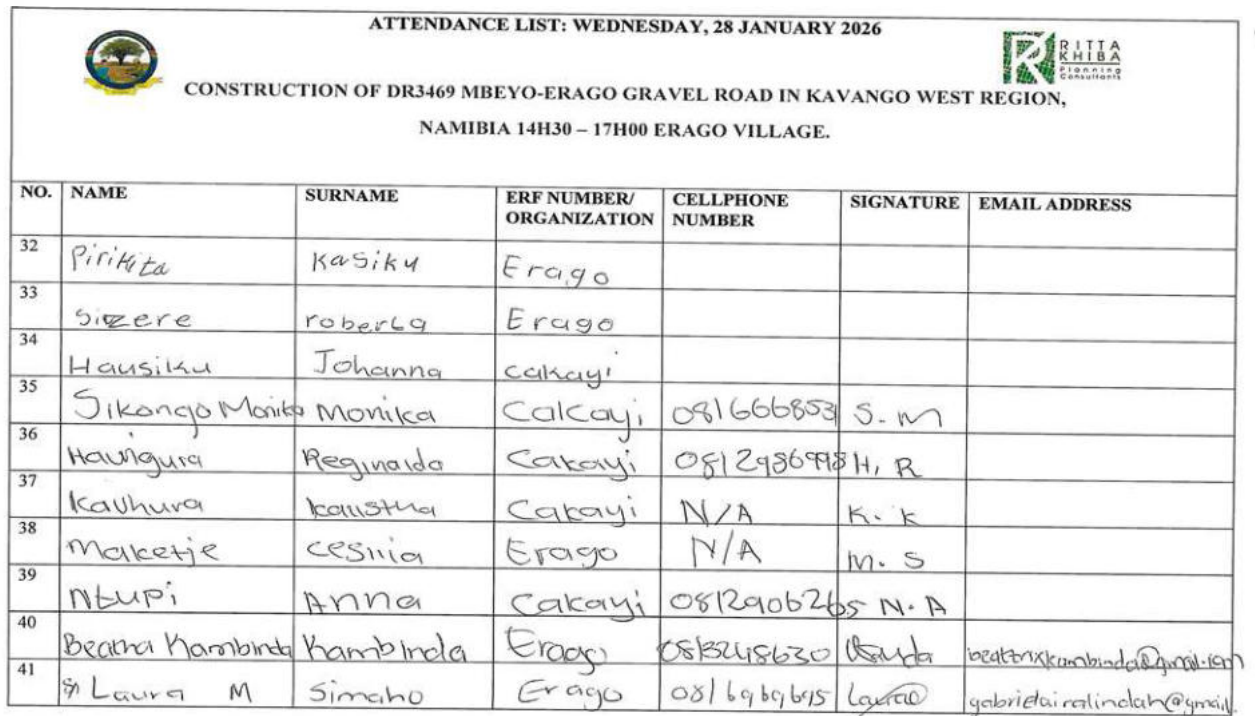 ATTENDANCE LIST: WEDNESDAY, 28 JANUARY 2026
RITTA
KHIBA
Planning
Consultants
CONSTRUCTION OF DR3469 MBEYO-ERAGO GRAVEL ROAD IN KAVANGO WEST REGION,
NAMIBIA 14H30 – 17H00 ERAGO VILLAGE.
NO. NAME SURNAME ERF NUMBER/ ORGANIZATION CELLPHONE NUMBER SIGNATURE EMAIL ADDRESS
32 Pirikita Kasiku Erago
33 Sizere roberta Erago
34 Hausiku Johanna cakayi
35 Sikongo Monika Monika Cakayi 081666853 S-M
36 Haingura Reginalda Cakayi 0812986998 H, R
37 Kavhura kaustha Cakayi N/A K. K
38 Maketje Erago N/A M. S
39 Ntupi Anna Cakayi 0812906265 N. A
40 Kambinda Kambinda Erago 0813248630 beatrixkambinda@gmail.com
41 Laura M Simaho Erago 0816969695 Laura gabrielairalindah@gmail.